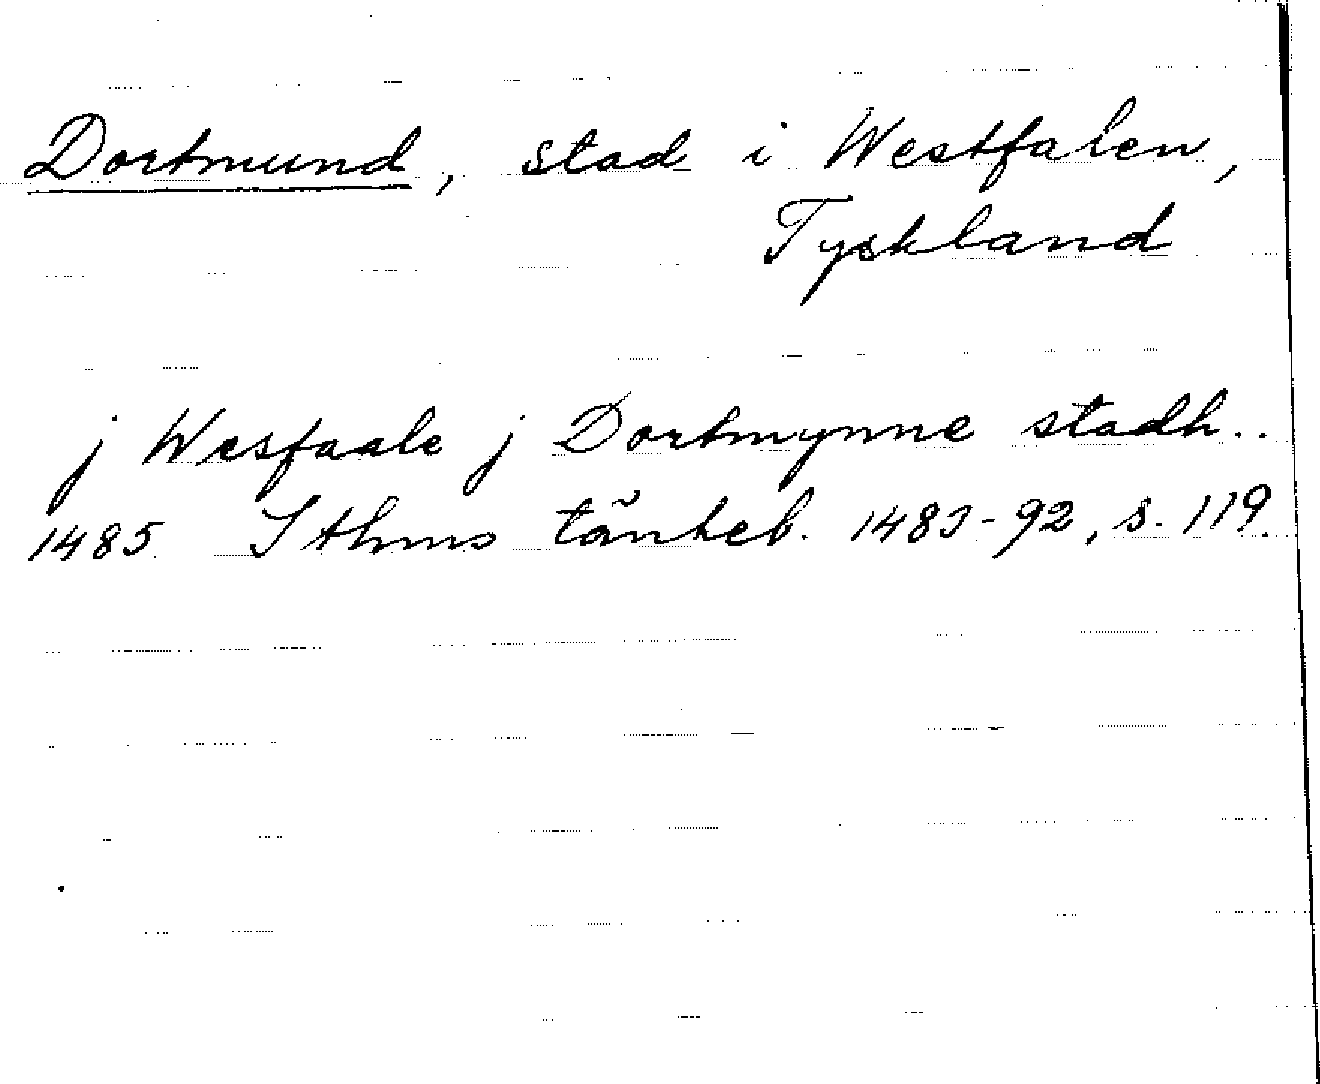 Dortmund, stad i Westfalen,
Tyskland
j Wesfaale j Dortmynne stadh..
1485 Sthms tänkeb. 1483-92, s. 119.